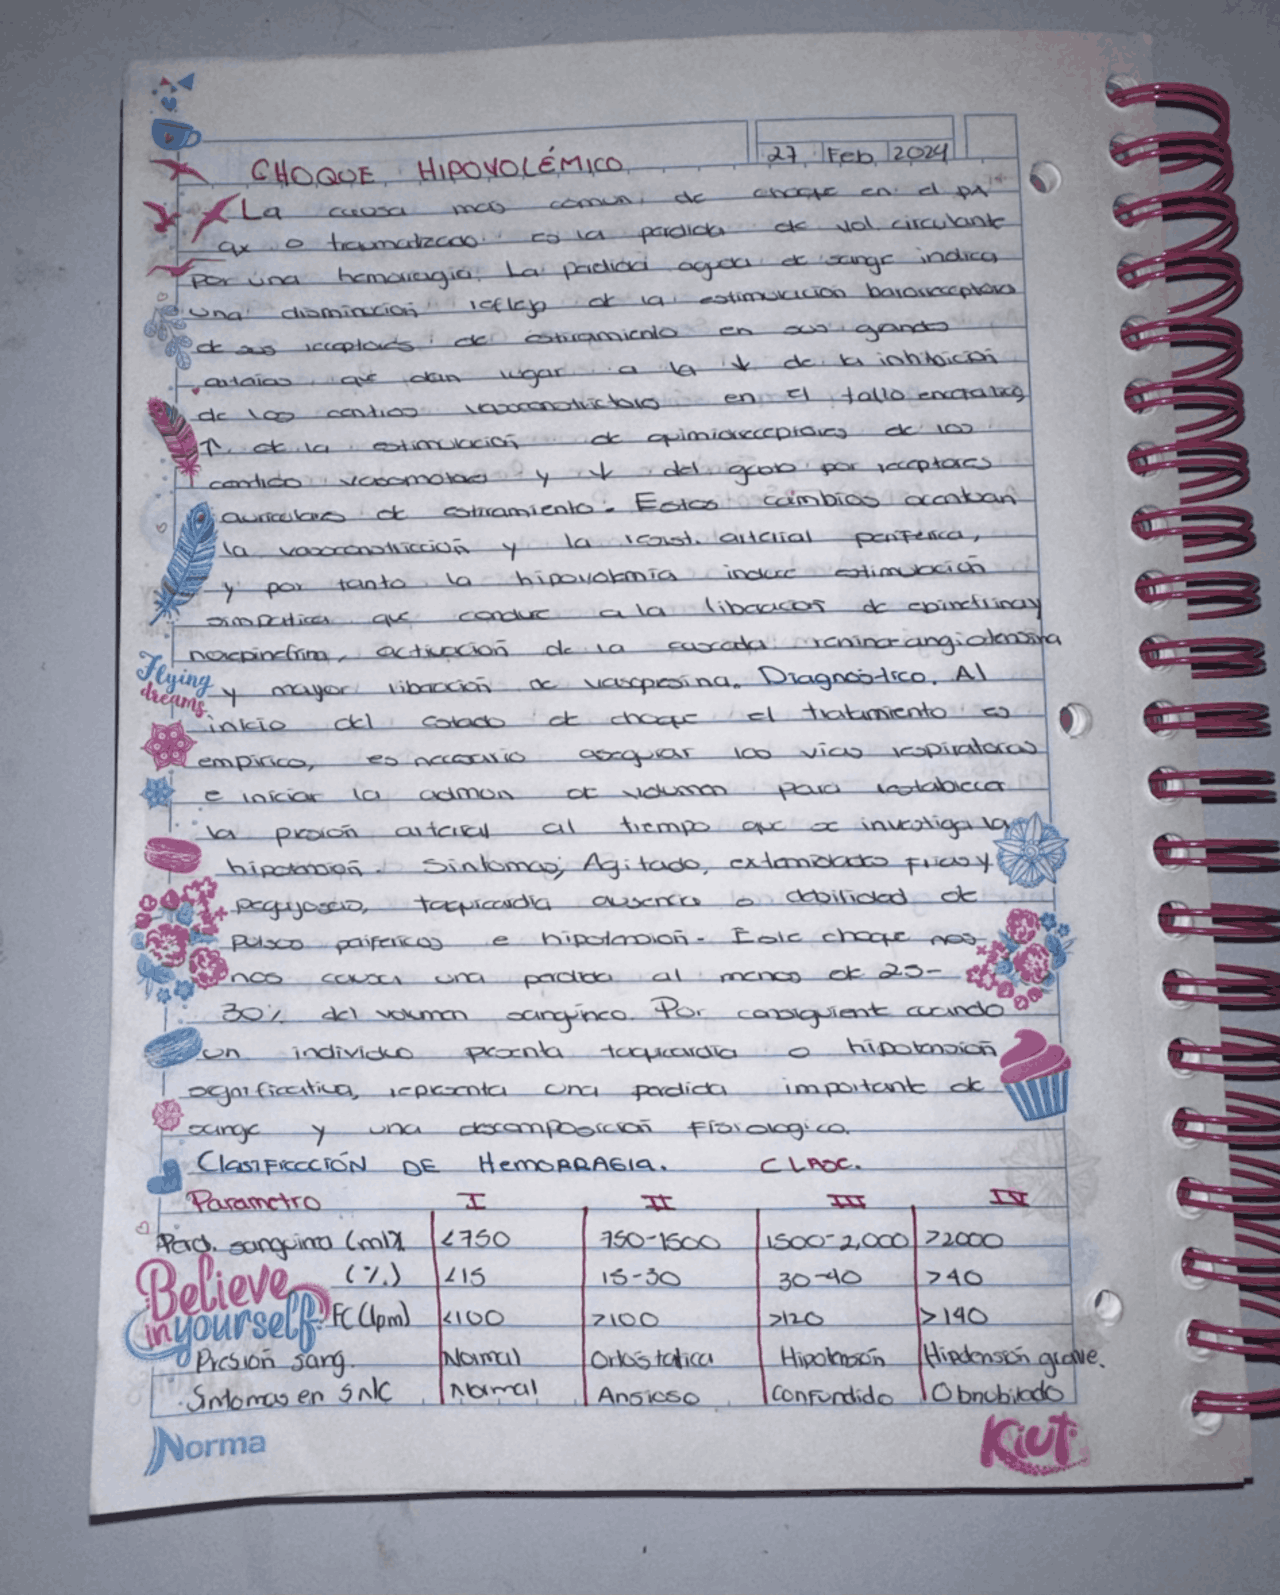 27 Feb 2024
CHOQUE HIPOVOLÉMICO
La causa mas comun de choque en el px
qx o traumatizado es la perdida de vol. circulante
por una hemorragia. La perdida aguda de sangre indica
una disminución reflejo de la estimulación barorreceptora
de sus receptores de estiramiento en sus grandes
arterias que dan lugar a la ↓ de la inhibición
de los centros vasoconstrictores en el tallo encefalico,
↑ de la estimulación de quimiorreceptores de los
centros vasomotores y ↓ del gasto por receptores
auriculares de estiramiento. Estos cambios acentuan
la vasoconstricción y la resist. arterial periférica,
y por tanto la hipovolemia induce estimulación
simpatica que conduce a la liberación de epinefrina y
norepinefrina, activación de la cascada renina-angiotensina
Flying dreams
y mayor liberación de vasopresina. Diagnóstico. Al
inicio del estado de choque el tratamiento es
empirico, es necesario asegurar las vias respiratorias
e iniciar la admon de volumen para restablecer
la presión arterial al tiempo que se investiga la
hipotensión. Sintomas; Agitado, extremidades frias y
pegajosas, taquicardia ausencia o debilidad de
pulsos perifericos e hipotension. Este choque nos
nos causa una perdida al menos de 25-
30% del volumen sanguineo. Por consiguiente cuando
un individuo presenta taquicardia o hipotensión
significativa, representa una perdida importante de
sangre y una descomposición fisiologica.
CLASIFICACIÓN DE HEMORRAGIA. CLASE.
Parametro I II III IV
Perd. sanguinea (ml) <750 750-1500 1500-2,000 >2000
(%) <15 15-30 30-40 >40
Believe in yourself
FC (lpm) <100 >100 >120 >140
Presión sang. Normal Ortostatica Hipotensión Hipotensión grave.
Sintomas en SNC Normal Ansioso Confundido Obnubilado
Norma
Kiut